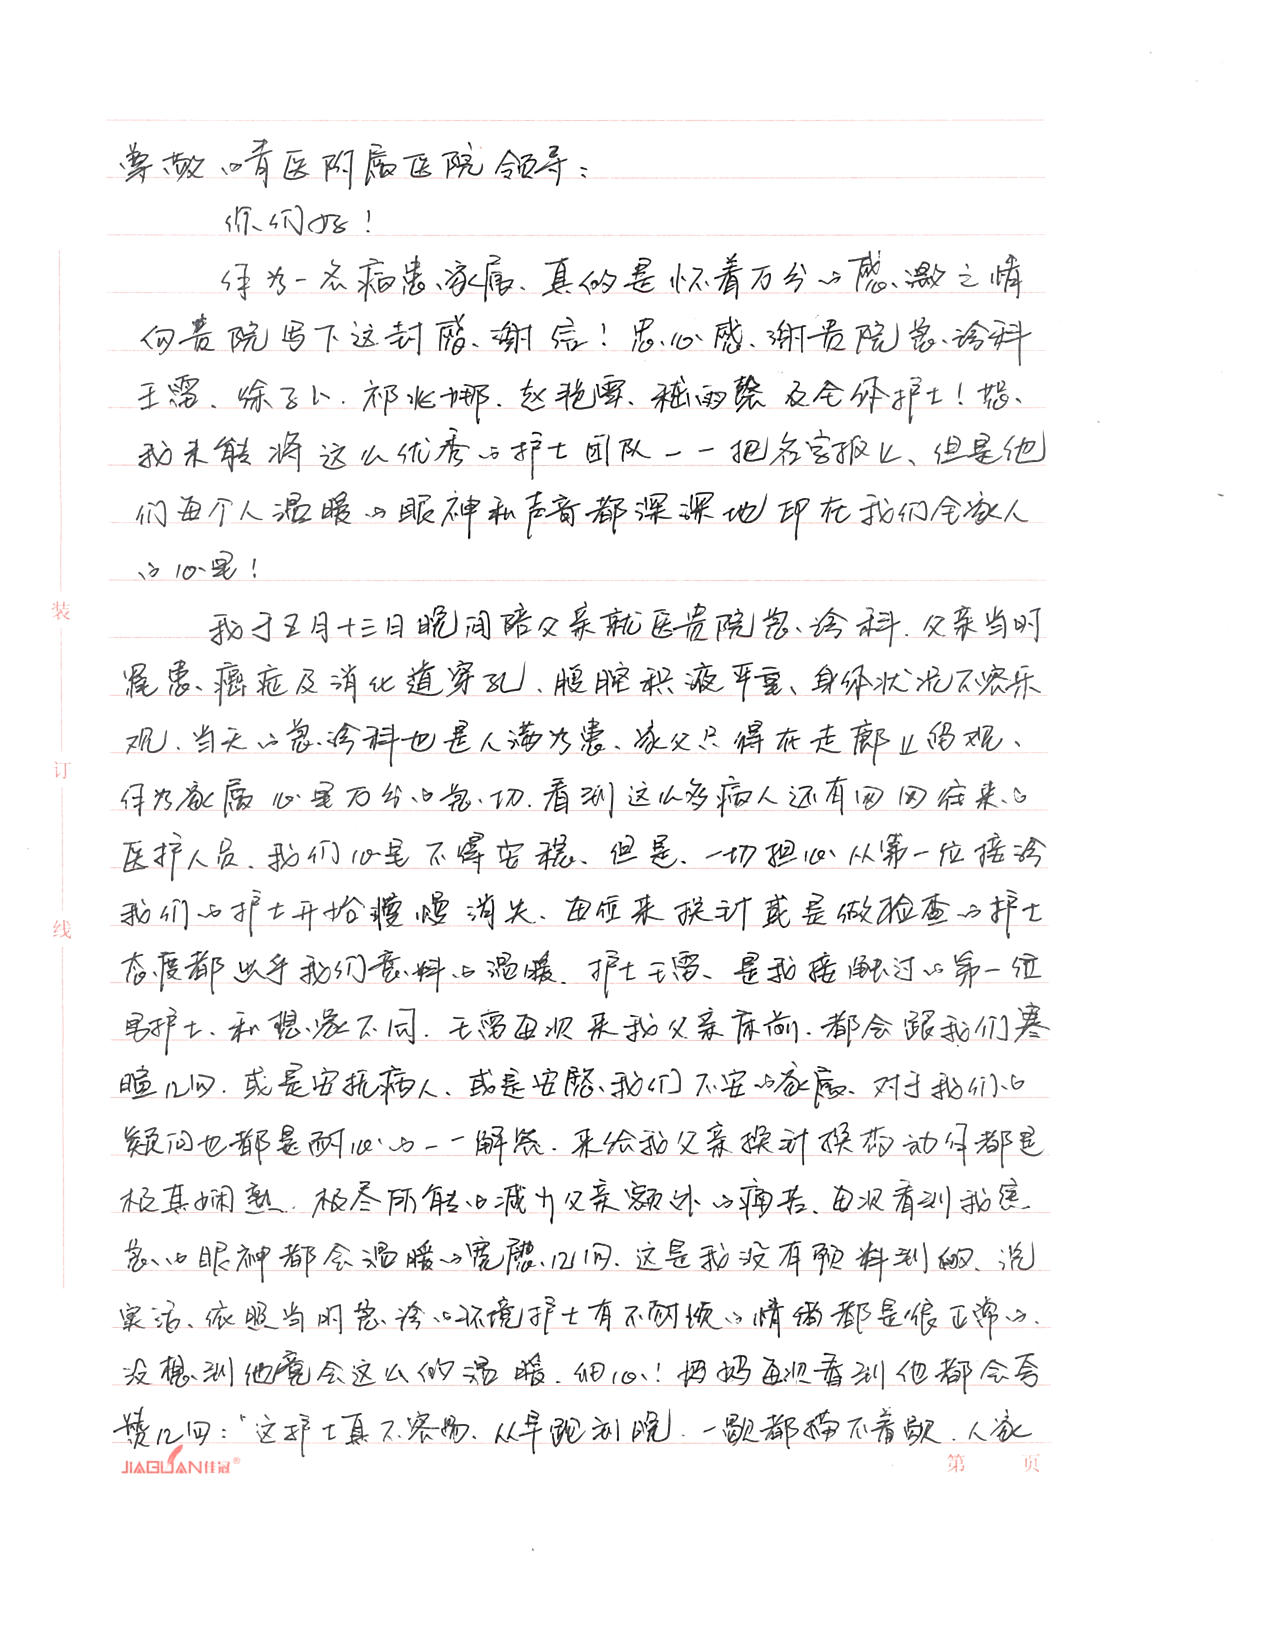 尊敬的青医附属医院领导：
你们好！
作为一名病患家属、真的是怀着万分的感激之情
向贵院写下这封感谢信！忠心感谢贵院急诊科
王雷、徐子卜、祁兆娜、赵艳雯、嵇雨馨及全体护士！恕
我未能将这么优秀的护士团队一一把名字报上、但是他
们每个人温暖的眼神和声音都深深地印在我们全家人
的心里！
我于五月十三日晚间陪父亲就医贵院急诊科．父亲当时
罹患癌症及消化道穿孔、腹腔积液严重、身体状况不容乐
观．当天的急诊科也是人满为患、家父只得在走廊上留观、
作为家属心里万分的急切．看到这么多病人还有来往的
医护人员、我们心里不得安稳、但是、一切担心从第一位接诊
我们的护士开始慢慢消失、每位来换针或是做检查的护士
态度都出乎我们意料的温暖．护士王雷、是我接触过的第一位
男护士、和想象不同．王雷每次来我父亲床前．都会跟我们寒
暄几句．或是安抚病人、或是安慰我们不安的家属、对于我们的
疑问也都是耐心的一一解答．来给我父亲换针换药动作都是
极其娴熟．极尽所能的减少父亲额外的痛苦、每次看到我焦
急的眼神都会温暖的宽慰几句．这是我没有预料到的、说
实话、依照当时急诊的环境护士有不耐烦的情绪都是很正常的．
没想到他竟会这么的温暖．细心！妈妈每次看到他都会夸
赞几句：“这护士真不容易．从早跑到晚．一歇都捞不着歇．人家
装
订
线
JIAGUAN佳冠®
第 页